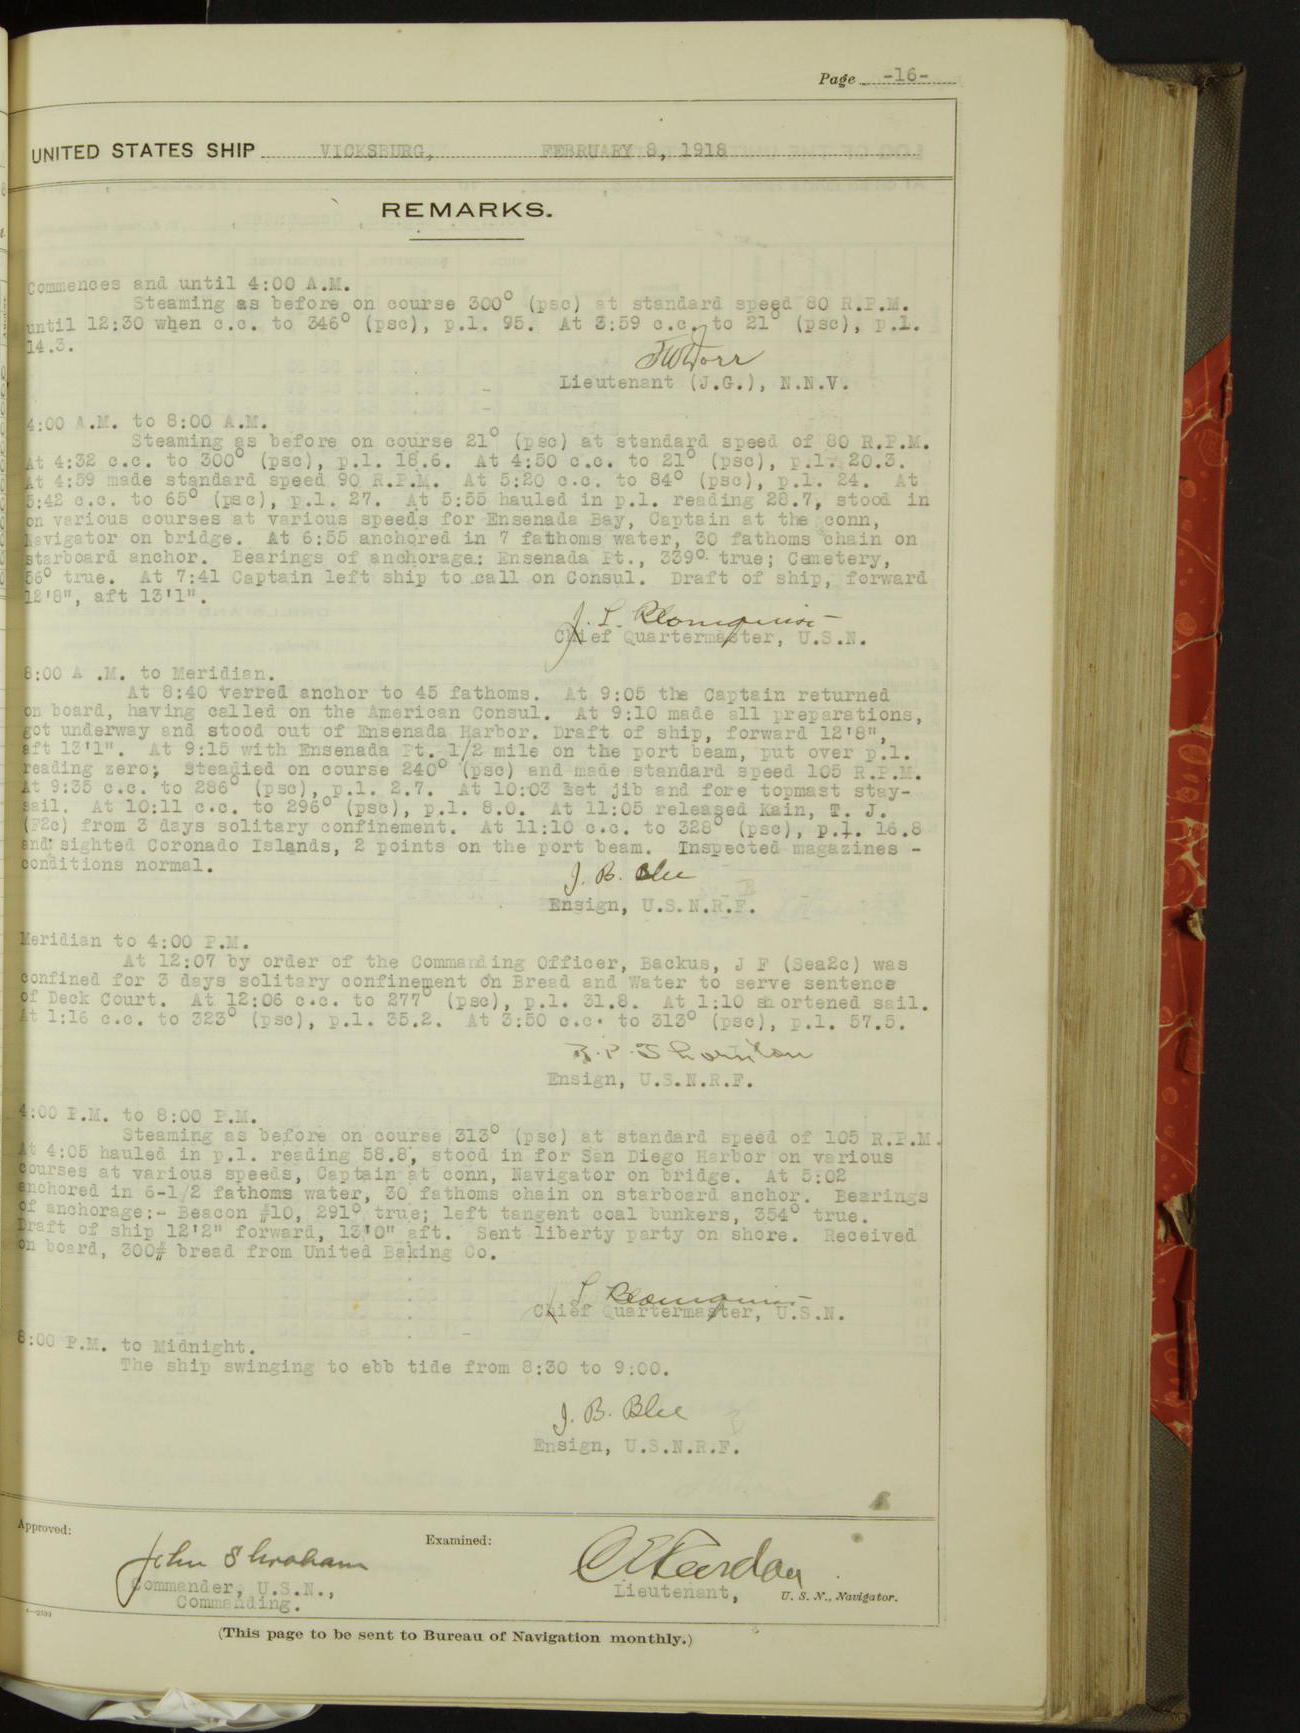 Page -16-
UNITED STATES SHIP VICKSBURG, FEBRUARY 8, 1918
REMARKS.
Commences and until 4:00 A.M.
Steaming as before on course 300° (psc) at standard speed 80 R.P.M.
until 12:30 when c.c. to 346° (psc), p.l. 95. At 3:59 c.c. to 21° (psc), p.l.
14.3.
Lieutenant (J.G.), N.N.V.
4:00 A.M. to 8:00 A.M.
Steaming as before on course 21° (psc) at standard speed of 80 R.P.M.
At 4:32 c.c. to 300° (psc), p.l. 18.6. At 4:50 c.c. to 21° (psc), p.l. 20.3.
At 4:59 made standard speed 90 R.P.M. At 5:20 c.c. to 84° (psc), p.l. 24. At
5:42 c.c. to 65° (psc), p.l. 27. At 5:55 hauled in p.l. reading 28.7, stood in
on various courses at various speeds for Ensenada Bay, Captain at the conn,
Navigator on bridge. At 6:55 anchored in 7 fathoms water, 30 fathoms chain on
starboard anchor. Bearings of anchorage: Ensenada Pt., 339° true; Cemetery,
56° true. At 7:41 Captain left ship to call on Consul. Draft of ship, forward
12'8", aft 13'1".
J. L. Blomquist
Chief Quartermaster, U.S.N.
8:00 A .M. to Meridian.
At 8:40 verred anchor to 45 fathoms. At 9:05 the Captain returned
on board, having called on the American Consul. At 9:10 made all preparations,
got underway and stood out of Ensenada Harbor. Draft of ship, forward 12'8",
aft 13'1". At 9:15 with Ensenada Pt. 1/2 mile on the port beam, put over p.l.
reading zero; Steadied on course 240° (psc) and made standard speed 105 R.P.M.
At 9:35 c.c. to 286° (psc), p.l. 2.7. At 10:03 set jib and fore topmast stay-
sail. At 10:11 c.c. to 296° (psc), p.l. 8.0. At 11:05 released Kain, T. J.
(F2c) from 3 days solitary confinement. At 11:10 c.c. to 328° (psc), p.l. 16.8
and sighted Coronado Islands, 2 points on the port beam. Inspected magazines -
conditions normal.
J. B. Blee
Ensign, U.S.N.R.F.
Meridian to 4:00 P.M.
At 12:07 by order of the Commanding Officer, Backus, J F (Sea2c) was
confined for 3 days solitary confinement on Bread and Water to serve sentence
of Deck Court. At 12:06 c.c. to 277° (psc), p.l. 31.8. At 1:10 shortened sail.
At 1:16 c.c. to 323° (psc), p.l. 35.2. At 3:50 c.c. to 313° (psc), p.l. 57.5.
R. P. Thornton
Ensign, U.S.N.R.F.
4:00 P.M. to 8:00 P.M.
Steaming as before on course 313° (psc) at standard speed of 105 R.P.M.
At 4:05 hauled in p.l. reading 58.8, stood in for San Diego Harbor on various
courses at various speeds, Captain at conn, Navigator on bridge. At 5:02
anchored in 6-1/2 fathoms water, 30 fathoms chain on starboard anchor. Bearings
of anchorage:- Beacon #10, 291° true; left tangent coal bunkers, 354° true.
Draft of ship 12'2" forward, 13'0" aft. Sent liberty party on shore. Received
on board, 300# bread from United Baking Co.
J. L. Blomquist
Chief Quartermaster, U.S.N.
8:00 P.M. to Midnight.
The ship swinging to ebb tide from 8:30 to 9:00.
J. B. Blee
Ensign, U.S.N.R.F.
Approved:
Examined:
John S Graham
Commander, U.S.N.,
Commanding.
Lieutenant, U. S. N., Navigator.
(This page to be sent to Bureau of Navigation monthly.)